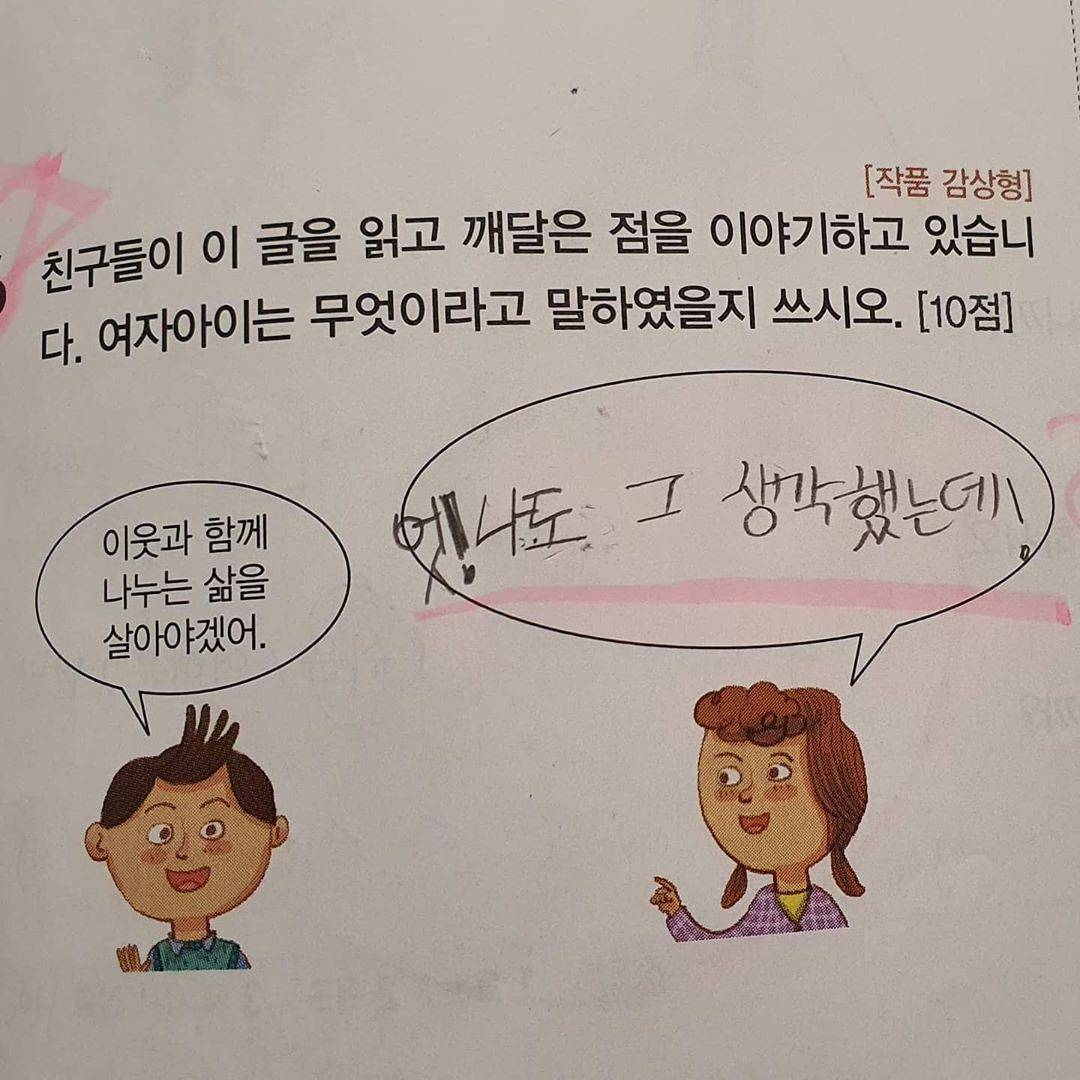 [작품 감상형]
친구들이 이 글을 읽고 깨달은 점을 이야기하고 있습니
다. 여자아이는 무엇이라고 말하였을지 쓰시오. [10점]
이웃과 함께
나누는 삶을
살아야겠어.
엣! 나도 그 생각했는데!